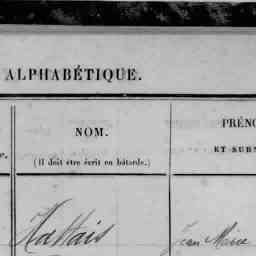 ALPHABÉTIQUE.
NOM.
(Il doit être écrit en bâtarde.)
PRÉNO
ET SURN
Hattais
Jean Marie